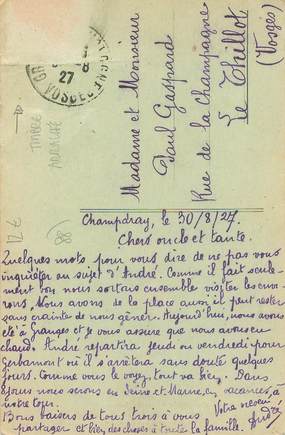 GR
VOSGES
8
27
TIMBRE
ARRACHÉ
12 €
(88)
Madame et Monsieur
Paul Gaspard
Rue de la Champagne
Le Thillot
(Vosges)
Champdray, le 30/8/27.
Chers oncle et tante.
Quelques mots pour vous dire de ne pas vous
inquiéter au sujet d'André. Comme il fait seule-
ment bon nous sortons ensemble visiter les envi-
rons. Nous avons de la place aussi il peut rester
sans crainte de nous gêner. Aujourd'hui, nous avons
été à Granges et je vous assure que nous avons eu
chaud. André repartira jeudi ou vendredi pour
Gerbamont où il s'arrêtera sans doute quelques
jours. Comme vous le voyez, tout va bien. Dans
jours nous serons en Seine et Marne, en vacances, à
notre tour.
Votre neveu
Bons baisers de tous trois à vous
André
partager et bien des choses à toute la famille.